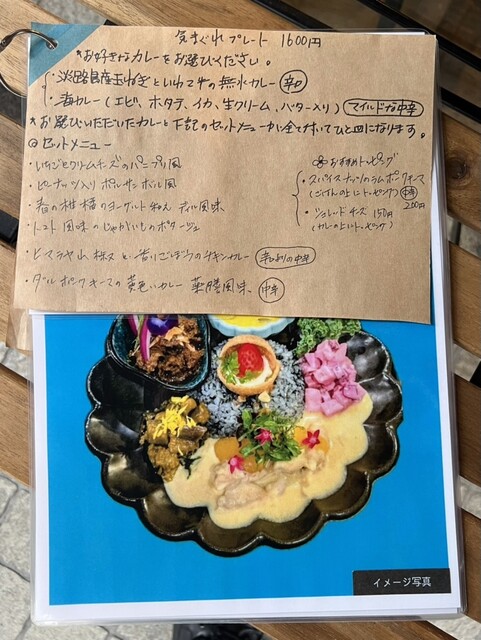 気まぐれプレート 1600円
*お好きなカレーをお選びください。
・淡路島産玉ねぎといわて牛の無水カレー 辛口
・海カレー(エビ、ホタテ、イカ、生クリーム、バター入り) マイルドな中辛
*お選びいただいたカレーと下記のセットメニューが全て付いてひと皿になります。
◎セットメニュー
・いちごとクリームチーズのパニプリ風
・ピーナッツ入りポルサンボル風
・春の柑橘のヨーグルト和え
・トマト風味のじゃがいものポタージュ
・ヒマラヤ山椒と香りごぼうのチキンカレー 辛よりの中辛
・ダルポークキーマの黄色いカレー 薬膳風味 中辛
おすすめトッピング
・スパイスナッツのラムポークキーマ
(ごはんの上にトッピング) 中辛
200円
・シュレッドチーズ 150円
(カレーの上にトッピング)
イメージ写真